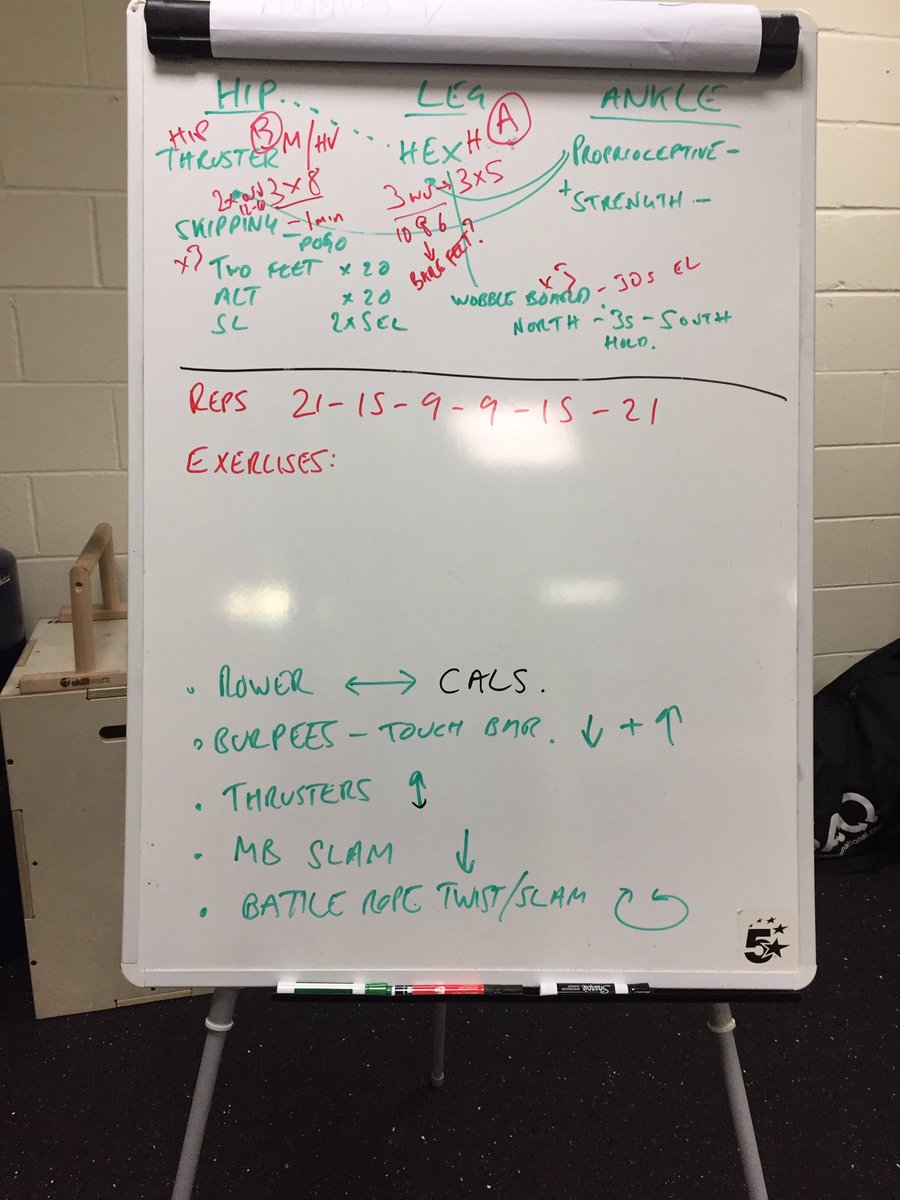 HIP.... LEG ANKLE
HIP B M/HV
THRUSTER
2x WU 3x8
12-10
SKIPPING - 1min
POGO
x3 TWO FEET x 20
ALT x 20
SL 2x5EL
HEX H A
3 WU → 3x5
10 8 6
↓
BARE FEET?
PROPRIOCEPTIVE -
+ STRENGTH -
x3
WOBBLE BOARD - 30S EL
NORTH - 3S - SOUTH
HOLD.
REPS 21-15-9-9-15-21
EXERCISES:
• ROWER ↔ CALS.
• BURPEES - TOUCH BAR. ↓ + ↑
• THRUSTERS ↕
• MB SLAM ↓
• BATTLE ROPE TWIST/SLAM
5
skillworx
Sharpie